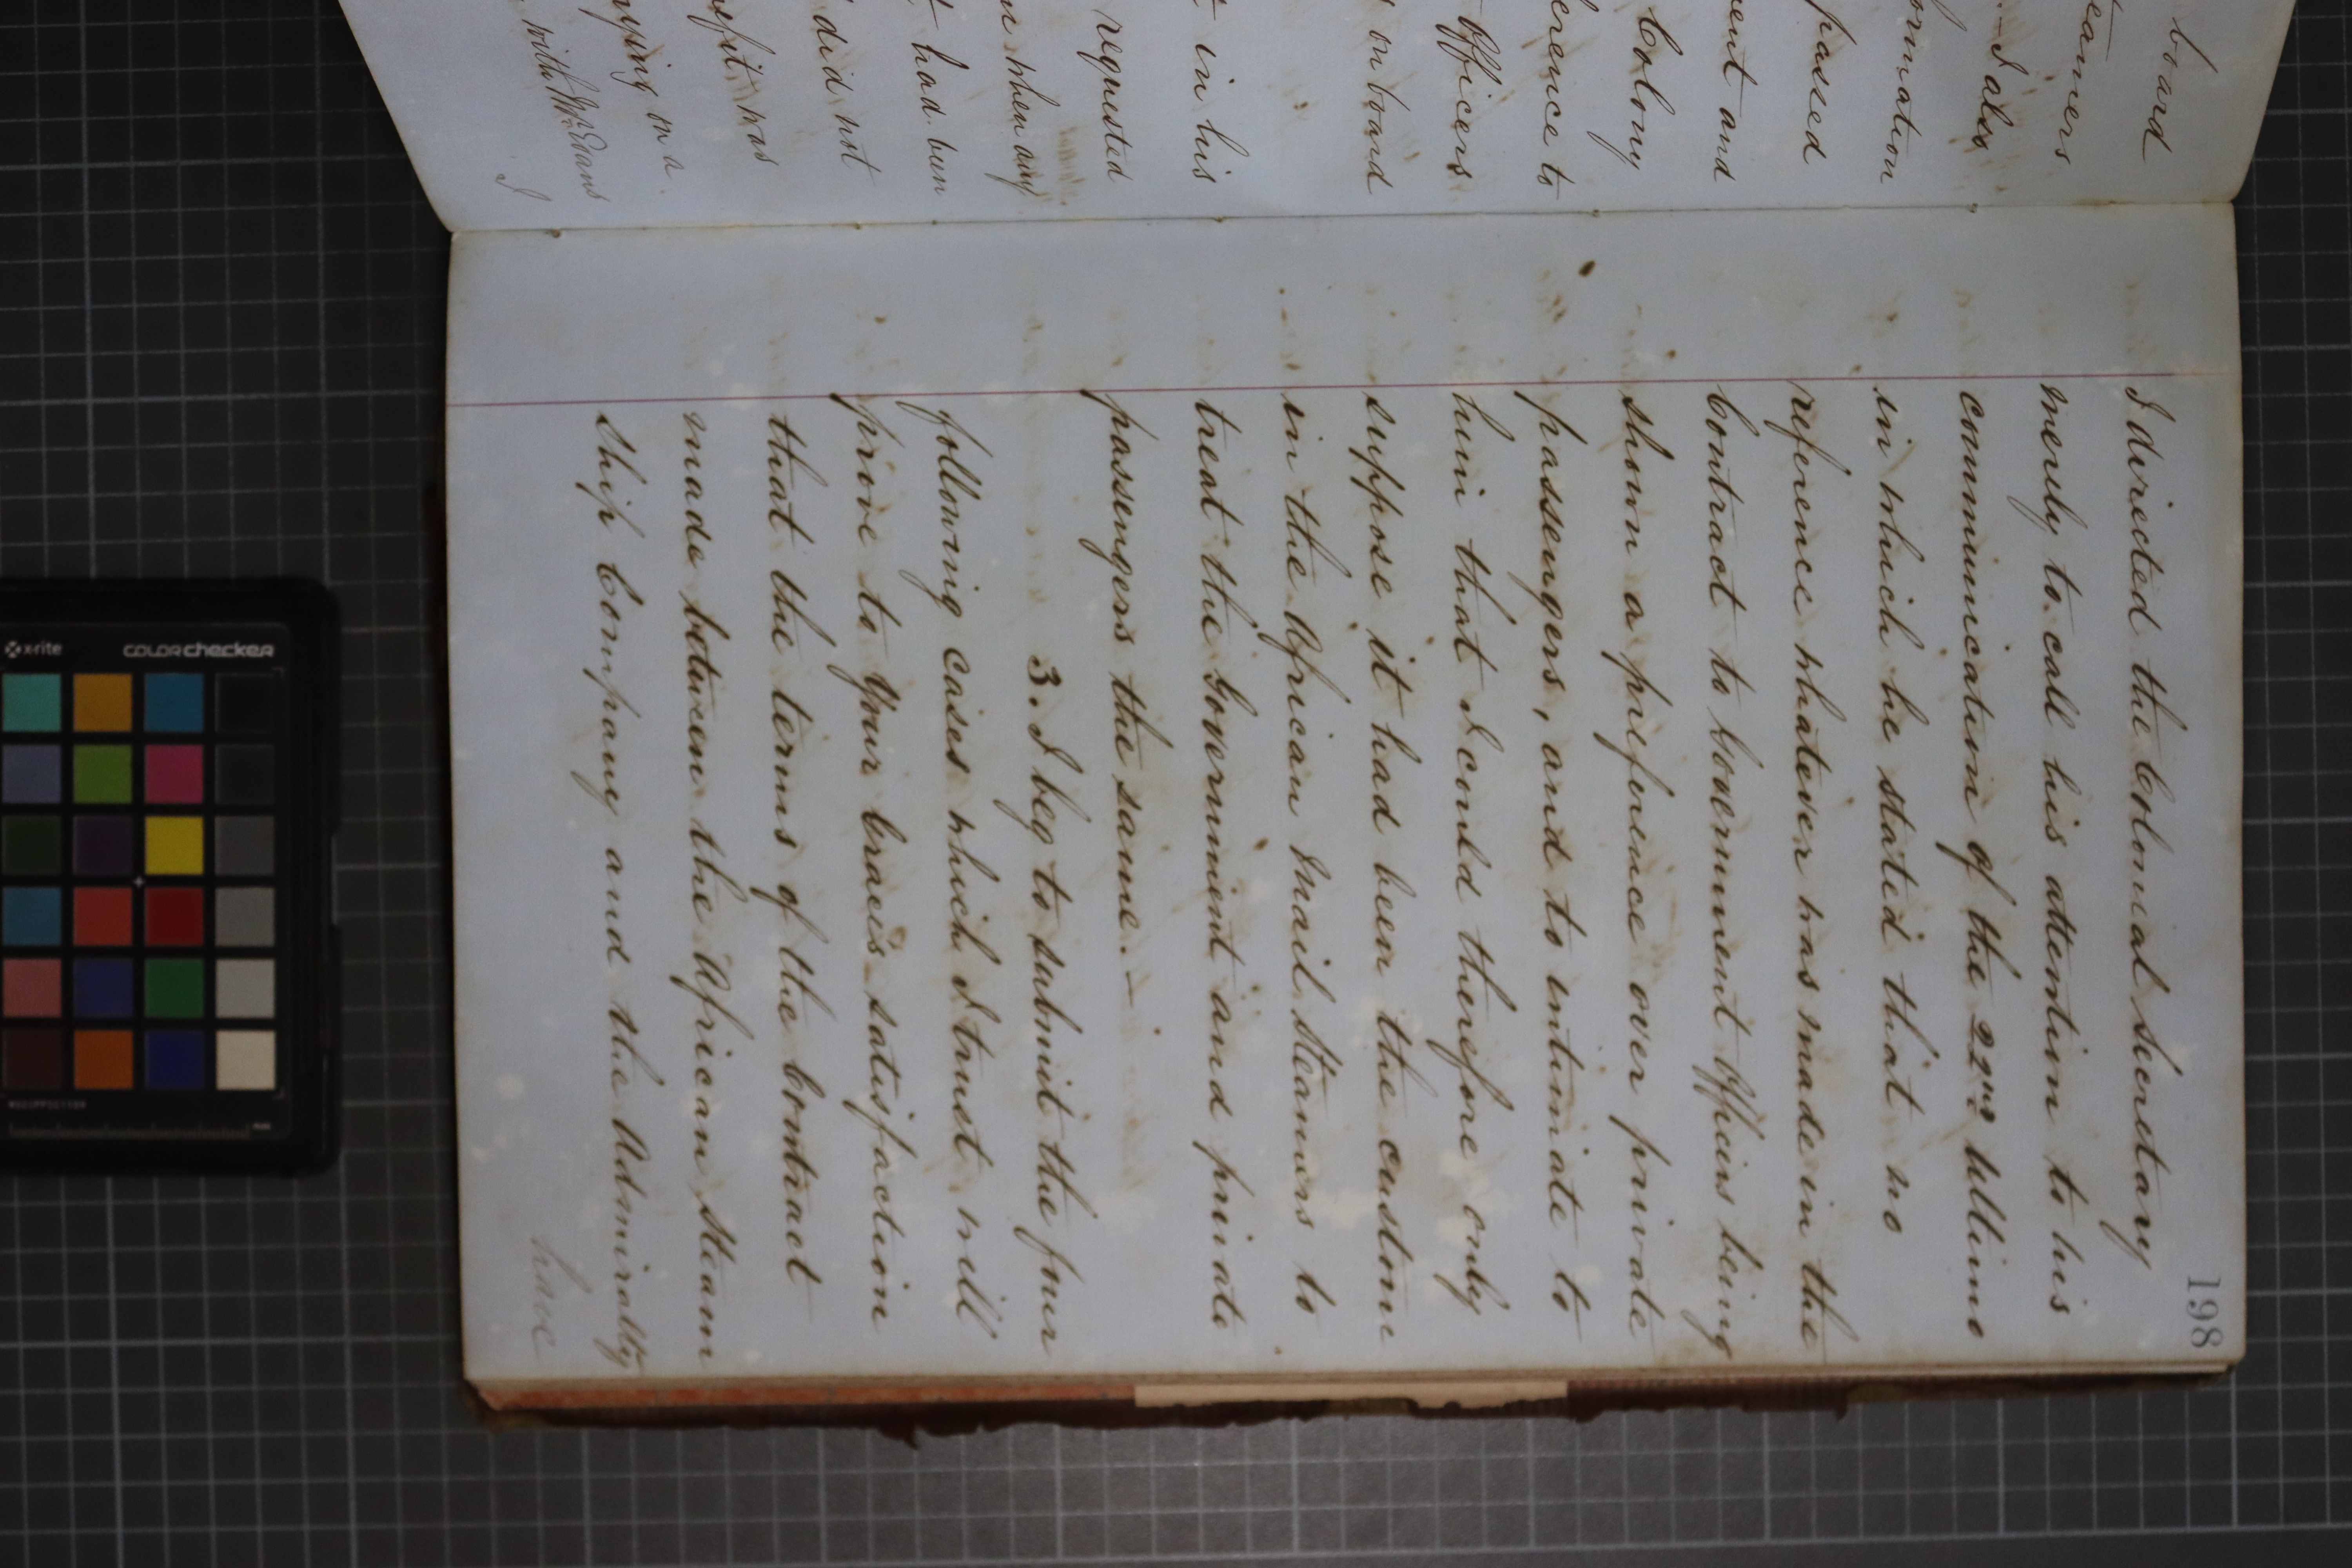 board
eamers
I also
ormation
passed
ent and
Colony
erence to
Officers
on board
in his
requested
n when any
had been
did not
efit was
rying on a
with Mr. Evans
I
198
I directed the Colonial Secretary
merely to call his attention to his
communication of the 22nd Ultimo
in which he stated that no
reference whatever was made in the
Contract to Government Officers being
shown a preference over private
passengers, and to intimate to
him that I could therefore only
suppose it had been the custom
in the African Mail Steamers to
treat the Government and private
passengers the same.-
3. I beg to submit the four
following cases which I trust will
prove to Your Grace's satisfaction
that the terms of the Contract
made between the African Steam
Ship Company and the Admiralty
have
x-rite
colorchecker